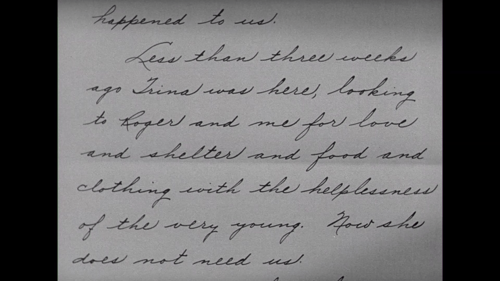 happened to us.
Less than three weeks
ago Trina was here, looking
to Roger and me for love
and shelter and food and
clothing with the helplessness
of the very young. Now she
does not need us.